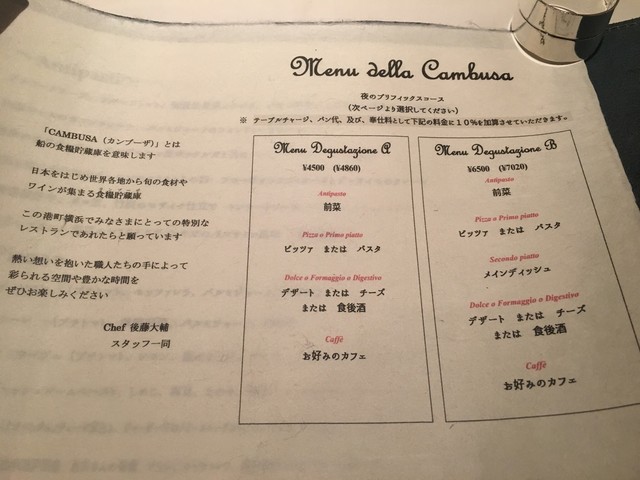 Menu della Cambusa
夜のプリフィックスコース
(次ページより選択してください)
※ テーブルチャージ、パン代、及び、奉仕料として下記の料金に10%を加算させていただきます。
「CAMBUSA (カンブーザ)」とは
船の食糧貯蔵庫を意味します
日本をはじめ世界各地から旬の食材や
ワインが集まる食糧貯蔵庫
この港町横浜でみなさまにとっての特別な
レストランであれたらと願っています
熱い想いを抱いた職人たちの手によって
彩られる空間や豊かな時間を
ぜひお楽しみください
Chef 後藤大輔
スタッフ一同
Menu Degustazione A
¥4500 (¥4860)
Antipasto
前菜
Pizza o Primo piatto
ピッツァ または パスタ
Dolce o Formaggio o Digestivo
デザート または チーズ
または 食後酒
Caffè
お好みのカフェ
Menu Degustazione B
¥6500 (¥7020)
Antipasto
前菜
Pizza o Primo piatto
ピッツァ または パスタ
Secondo piatto
メインディッシュ
Dolce o Formaggio o Digestivo
デザート または チーズ
または 食後酒
Caffè
お好みのカフェ